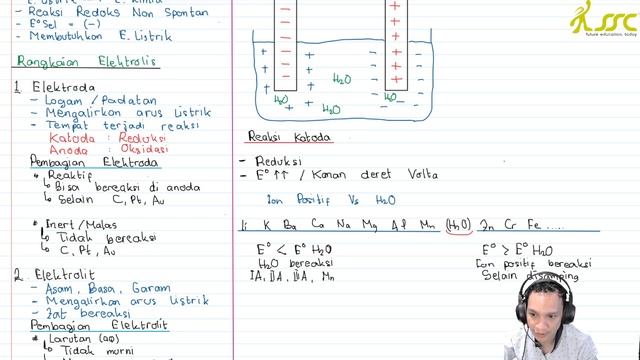 - Reaksi Redoks Non Spontan
- E° Sel = (-)
- Membutuhkan E. Listrik
Rangkaian Elektrolis
1. Elektroda
- Logam / Padatan
- Mengalirkan arus listrik
- Tempat terjadi reaksi
Katoda : Reduksi
Anoda : Oksidasi
Pembagian Elektroda
* Reaktif
↳ Bisa bereaksi di anoda
↳ Selain C, Pt, Au
* Inert / Malas
↳ Tidak bereaksi
↳ C, Pt, Au
2. Elektrolit
- Asam, Basa, Garam
- Mengalirkan arus listrik
- Zat bereaksi
Pembagian Elektrolit
* Larutan (aq)
↳ Tidak murni
SSC
future education, today
H2O
H2O
H2O
H2O
Reaksi Katoda
- Reduksi
- E° ↑↑ / Kanan deret Volta
Ion Positif Vs H2O
Li K Ba Ca Na Mg Al Mn (H2O) Zn Cr Fe .....
E° < E° H2O
H2O bereaksi
IA, IIA, IIIA, Mn
E° > E° H2O
Ion positif bereaksi
Selain disamping